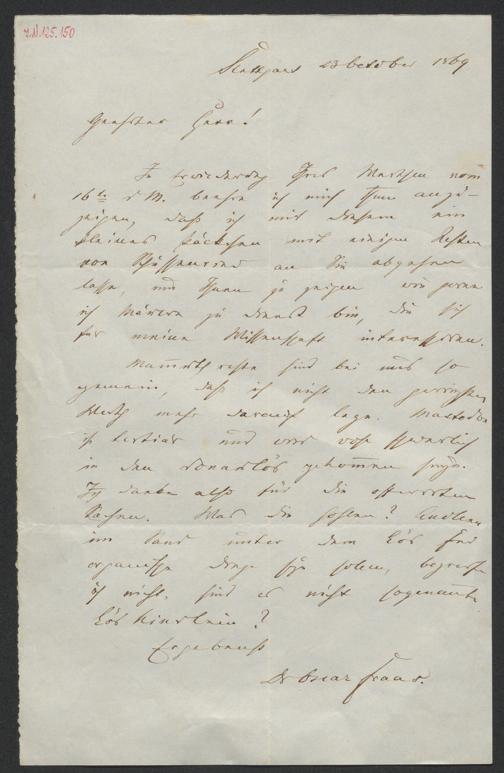 J.N. 125.150
Stuttgart 23 October 1869
Geehrter Herr!
In Erwiederung Ihres Werthen vom
16ten d M. beehre ich mich Ihnen anzu-
zeigen, daß ich mit diesem ein
kleines Päckchen mit einigen Resten
von Schussenried an Sie abgehen
lasse, um Ihnen zu zeigen wie gerne
ich Männern zu Dienst bin, die sich
für meine Wissenschaft interessiren.
Mammuthreste sind bei uns so
gemein, daß ich nicht den geringsten
Werth mehr darauf lege. Mastodon
ist tertiär und wird wohl schwerlich
in den Donaulös gekommen seyn.
Ich danke also für die offerirten
Sachen. Was die
im Sand unter dem Lös für
organische Dinge seyn sollen, begreife
ich nicht, sind es nicht sogenannte
Lös Kindlein?
Ergebenst
Dr Oscar Fraas.